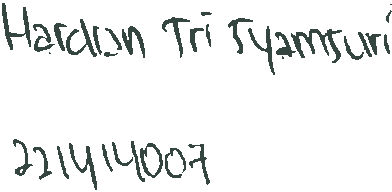 Hardian Tri Syamsuri
221414007